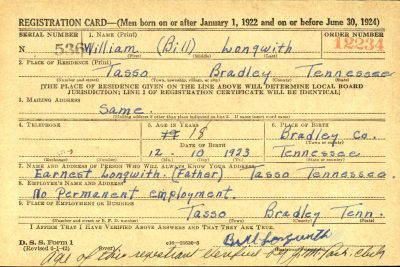 REGISTRATION CARD—(Men born on or after January 1, 1922 and on or before June 30, 1924)
SERIAL NUMBER 1. NAME (Print) ORDER NUMBER
N 536 William (Bill) Longwith 12234
(First) (Middle) (Last)
2. PLACE OF RESIDENCE (Print)
Tasso Bradley Tennessee
(Number and street) (Town, township, village, or city) (County) (State)
[THE PLACE OF RESIDENCE GIVEN ON THE LINE ABOVE WILL DETERMINE LOCAL BOARD
JURISDICTION; LINE 2 OF REGISTRATION CERTIFICATE WILL BE IDENTICAL]
3. MAILING ADDRESS
Same.
[Mailing address if other than place indicated on line 2. If same insert word same]
4. TELEPHONE 5. AGE IN YEARS 6. PLACE OF BIRTH
18 Bradley Co.
DATE OF BIRTH (Town or county)
12 10 1923 Tennessee
(Exchange) (Number) (Mo.) (Day) (Yr.) (State or country)
7. NAME AND ADDRESS OF PERSON WHO WILL ALWAYS KNOW YOUR ADDRESS
Earnest Longwith. (Father) Tasso Tennessee.
8. EMPLOYER'S NAME AND ADDRESS
No Permanent employment.
9. PLACE OF EMPLOYMENT OR BUSINESS
Tasso Bradley Tenn.
(Number and street or R. F. D. number) (Town) (County) (State)
I AFFIRM THAT I HAVE VERIFIED ABOVE ANSWERS AND THAT THEY ARE TRUE.
D. S. S. Form 1 Bill Longwith
(Revised 6-1-42) (over)
age of this registrant